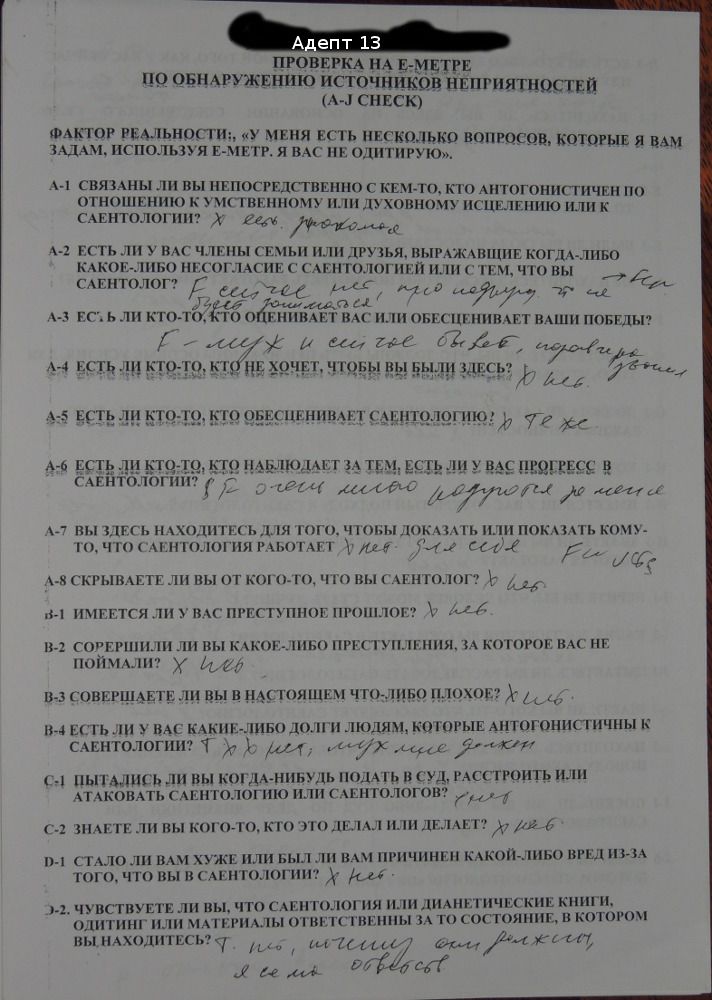 Адепт 13
ПРОВЕРКА НА Е-МЕТРЕ
ПО ОБНАРУЖЕНИЮ ИСТОЧНИКОВ НЕПРИЯТНОСТЕЙ
(A-J CHECK)
ФАКТОР РЕАЛЬНОСТИ:, «У МЕНЯ ЕСТЬ НЕСКОЛЬКО ВОПРОСОВ, КОТОРЫЕ Я ВАМ
ЗАДАМ, ИСПОЛЬЗУЯ Е-МЕТР. Я ВАС НЕ ОДИТИРУЮ».
А-1 СВЯЗАНЫ ЛИ ВЫ НЕПОСРЕДСТВЕННО С КЕМ-ТО, КТО АНТОГОНИСТИЧЕН ПО
ОТНОШЕНИЮ К УМСТВЕННОМУ ИЛИ ДУХОВНОМУ ИСЦЕЛЕНИЮ ИЛИ К
САЕНТОЛОГИИ? X есть знакомая
А-2 ЕСТЬ ЛИ У ВАС ЧЛЕНЫ СЕМЬИ ИЛИ ДРУЗЬЯ, ВЫРАЖАВЩИЕ КОГДА-ЛИБО
КАКОЕ-ЛИБО НЕСОГЛАСИЕ С САЕНТОЛОГИЕЙ ИЛИ С ТЕМ, ЧТО ВЫ
САЕНТОЛОГ? F сейчас нет, про подругу
будет заниматься
А-3 ЕСТЬ ЛИ КТО-ТО, КТО ОЦЕНИВАЕТ ВАС ИЛИ ОБЕСЦЕНИВАЕТ ВАШИ ПОБЕДЫ?
F - муж и сейчас бывает,
А-4 ЕСТЬ ЛИ КТО-ТО, КТО НЕ ХОЧЕТ, ЧТОБЫ ВЫ БЫЛИ ЗДЕСЬ? X нет.
А-5 ЕСТЬ ЛИ КТО-ТО, КТО ОБЕСЦЕНИВАЕТ САЕНТОЛОГИЮ? X те же.
А-6 ЕСТЬ ЛИ КТО-ТО, КТО НАБЛЮДАЕТ ЗА ТЕМ, ЕСТЬ ЛИ У ВАС ПРОГРЕСС В
САЕНТОЛОГИИ? F очень много радуются за меня
А-7 ВЫ ЗДЕСЬ НАХОДИТЕСЬ ДЛЯ ТОГО, ЧТОБЫ ДОКАЗАТЬ ИЛИ ПОКАЗАТЬ КОМУ-
ТО, ЧТО САЕНТОЛОГИЯ РАБОТАЕТ X нет. для себя
А-8 СКРЫВАЕТЕ ЛИ ВЫ ОТ КОГО-ТО, ЧТО ВЫ САЕНТОЛОГ? X нет.
В-1 ИМЕЕТСЯ ЛИ У ВАС ПРЕСТУПНОЕ ПРОШЛОЕ? X нет.
В-2 СОВЕРШИЛИ ЛИ ВЫ КАКОЕ-ЛИБО ПРЕСТУПЛЕНИЯ, ЗА КОТОРОЕ ВАС НЕ
ПОЙМАЛИ? X нет.
В-3 СОВЕРШАЕТЕ ЛИ ВЫ В НАСТОЯЩЕМ ЧТО-ЛИБО ПЛОХОЕ? X нет.
В-4 ЕСТЬ ЛИ У ВАС КАКИЕ-ЛИБО ДОЛГИ ЛЮДЯМ, КОТОРЫЕ АНТОГОНИСТИЧНЫ К
САЕНТОЛОГИИ? T X X нет, муж мне должен
С-1 ПЫТАЛИСЬ ЛИ ВЫ КОГДА-НИБУДЬ ПОДАТЬ В СУД, РАССТРОИТЬ ИЛИ
АТАКОВАТЬ САЕНТОЛОГИЮ ИЛИ САЕНТОЛОГОВ? X нет
С-2 ЗНАЕТЕ ЛИ ВЫ КОГО-ТО, КТО ЭТО ДЕЛАЛ ИЛИ ДЕЛАЕТ? X нет.
D-1 СТАЛО ЛИ ВАМ ХУЖЕ ИЛИ БЫЛ ЛИ ВАМ ПРИЧИНЕН КАКОЙ-ЛИБО ВРЕД ИЗ-ЗА
ТОГО, ЧТО ВЫ В САЕНТОЛОГИИ? X нет.
D-2. ЧУВСТВУЕТЕ ЛИ ВЫ, ЧТО САЕНТОЛОГИЯ ИЛИ ДИАНЕТИЧЕСКИЕ КНИГИ,
ОДИТИНГ ИЛИ МАТЕРИАЛЫ ОТВЕТСТВЕННЫ ЗА ТО СОСТОЯНИЕ, В КОТОРОМ
ВЫ НАХОДИТЕСЬ? T. нет, почему они должны,
я сама ответств.